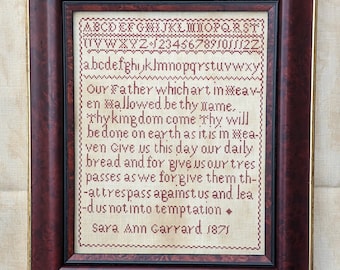 ABCDEFGHIJKLMNOPQRST
UVWXYZ 1234567891011122
abcdefghijklmnopqrstuvwxy
Our Father which art in Heav
en Hallowed be thy Name,
Thy kingdom come Thy will
be done on earth as it is in Hea
ven Give us this day our daily
bread and for give us our tres
passes as we for give them th
at trespass against us and lea
d us not into temptation
Sara Ann Garrard 1871